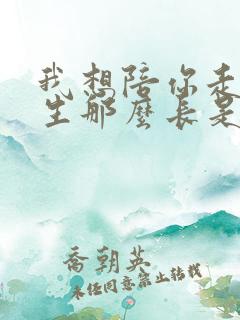 我想陪你走
生那麼長是
喬朝英
未经同意禁止转载